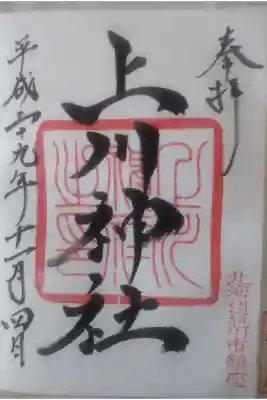 奉拝
上川神社
平成二十九年十一月四日
北海道旭川市鎮座